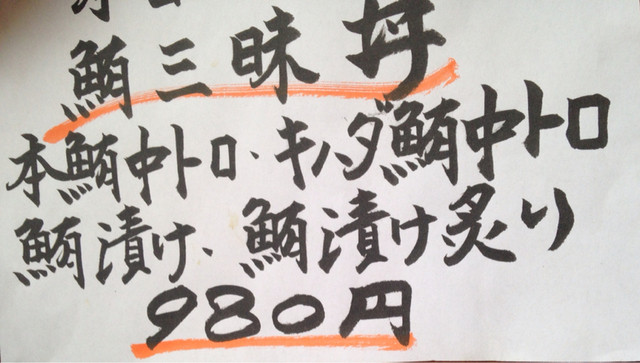 鮪三昧丼
本鮪中トロ、キハダ鮪中トロ
鮪漬け、鮪漬け炙り
980円